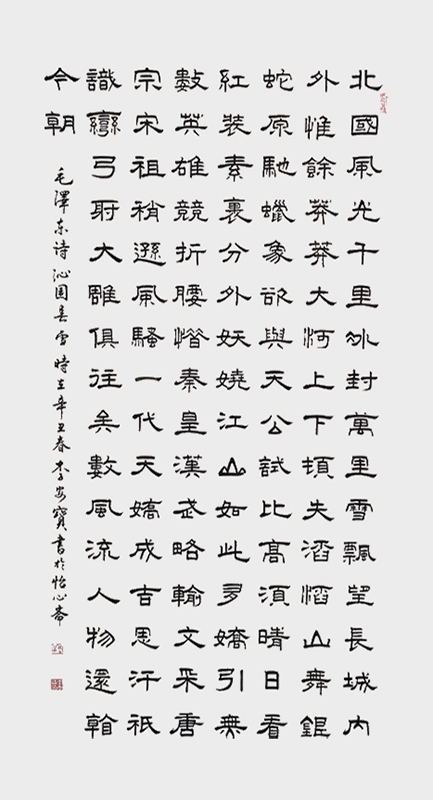 北國風光千里冰封萬里雪飄望長城內
外惟餘莽莽大河上下頓失滔滔山舞銀
蛇原馳蠟象欲與天公試比高須晴日看
紅裝素裹分外妖嬈江山如此多嬌引無
數英雄競折腰惜秦皇漢武略輸文采唐
宗宋祖稍遜風騷一代天嬌成吉思汗祇
識彎弓射大雕俱往矣數風流人物還看
今朝
毛澤东诗沁园春雪時在辛丑春李安寶書於怡心斋